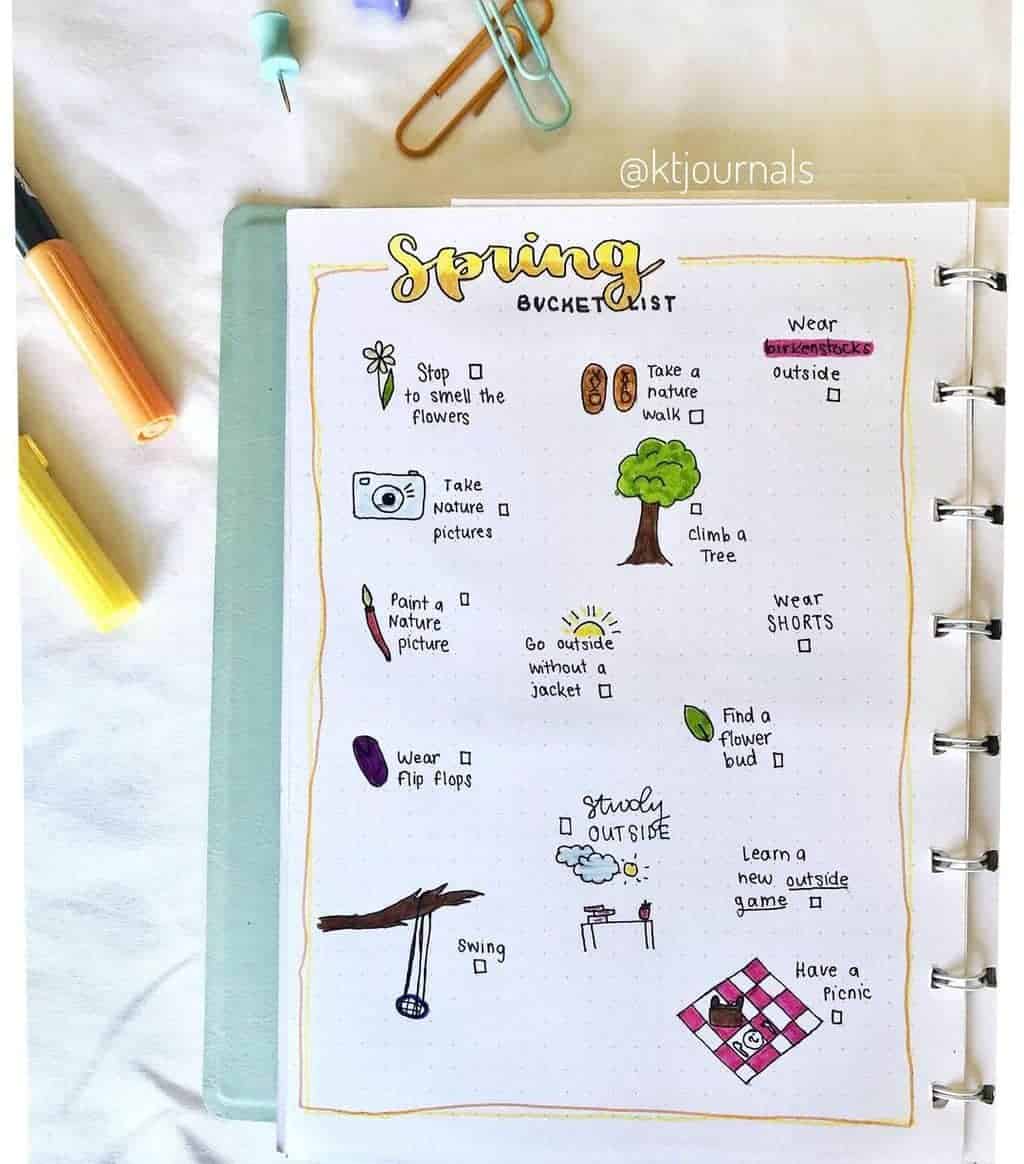 @ktjournals
Spring
BUCKET LIST
Stop
to smell the
flowers
Take a
nature
walk
Wear
birkenstocks
outside
Take
Nature
pictures
Climb a
Tree
Paint a
Nature
picture
Go outside
without a
jacket
Wear
SHORTS
Wear
flip flops
Find a
flower
bud
Study
OUTSIDE
Learn a
new outside
game
Swing
Have a
Picnic